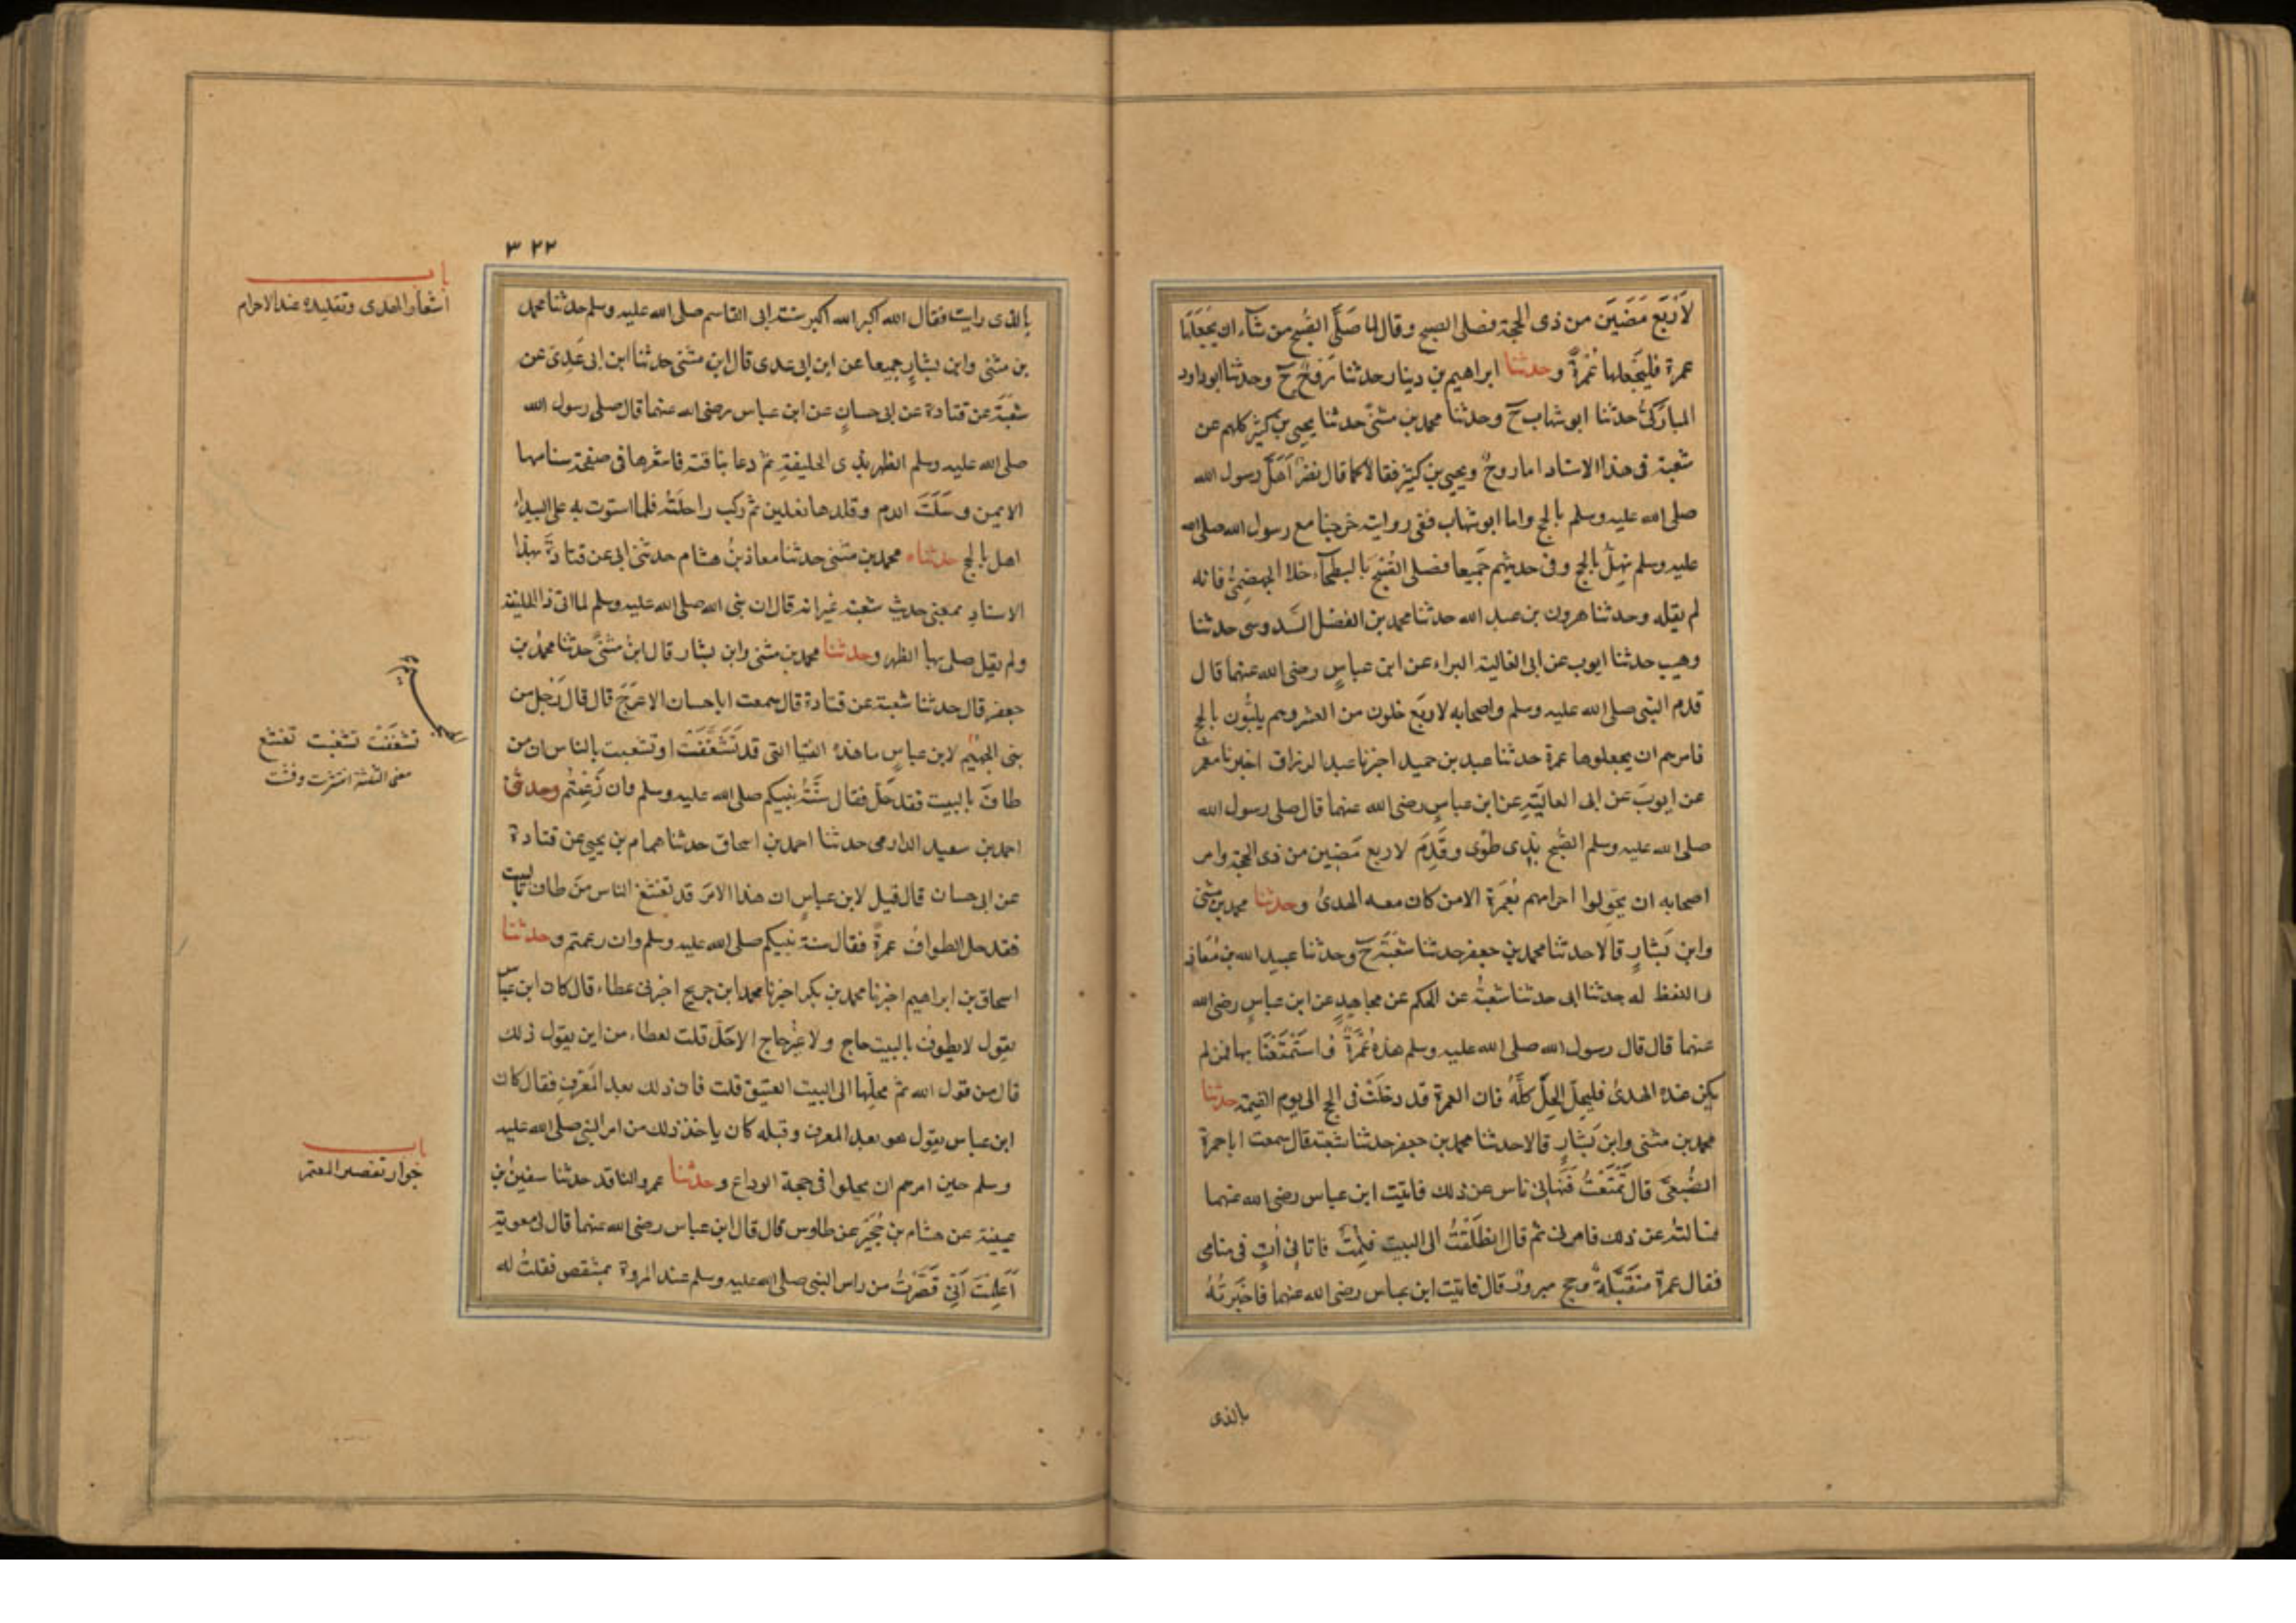 لَاَرْبَعٍ مَضَيْنَ من ذى الحجة فصلى الصبح وقال لما صَلَّى الصُّبح من شآء ان يَجْعَلَهَا
عمرة فليَجْعلها عُمْرَةً وحدثنا ابراهيم بن دينار حدثنا رَوحٌ ح وحدثنا ابو داود
المبارَكىُّ حدثنا ابو شهاب ح وحدثنا محمد بن مثنىَّ حدثنا يحيى بن كثير كلهم عن
شعبة فى هذا الاسناد اما روحٌ ويحيى بن كثير فقالا كما قال نصرٌ اَهَلَّ رسول الله
صلى الله عليه وسلم بالحج واما ابو شهاب ففى روايته خرجنا مع رسول الله صلى الله
عليه وسلم نهِلُّ بالحج وفى حديثهم جَميعا فصلى الصُّبحَ بالبطحآء خلا الجهضمِىُّ فانه
لم يقله وحدثنا هرون بن عبد الله حدثنا محمد بن الفضل السَّدوسى حدثنا
وهيب حدثنا ايوب عن ابى العالية البراء عن ابن عباسٍ رضى الله عنهما قال
قدم النبى صلى الله عليه وسلم واصحابه لاربَع خلون من العشر وهم يلبُّون بالحج
فامرهم ان يجعلوها عمرة حدثنا عبد بن حميد اخبرنا عبد الرزاق اخبرنا معمر
عن ايوبَ عن ابى العاليَةِ عن ابن عباسٍ رضى الله عنهما قال صلى رسول الله
صلى الله عليه وسلم الصُّبح بذِى طوًى وقَدِمَ لاربع مَضَين من ذى الحجة وامر
اصحابه ان يحَولوا احرامهم بعُمرَة الا من كان معه الهدىُ وحدثنا محمد بن مثنى
وابن بَشارٍ قالا حدثنا محمد بن جعفر حدثنا شعبَة ح وحدثنا عبيد الله بن مُعَاذٍ
واللفظ له حدثنا ابى حدثنا شعبةُ عن الحكم عن مجاهدٍ عن ابن عباسٍ رضى الله
عنهما قال قال رسول الله صلى الله عليه وسلم هذه عُمْرَةٌ اَستَمْتَعْنَا بها فمن لم
يكن عنده الهدىُ فليحِلَّ الحِلَّ كلَّهُ فان العمرة قد دخَلَتْ فى الحج الى يوم القيمة حدثنا
محمد بن مثنى وابن بَشارٍ قالا حدثنا محمد بن جعفر حدثنا شعبة قال سمعت ابا جمرة
الضُّبعىَّ قال تَمتَّعْتُ فَنَهَانِى ناس عن ذلك فاتيت ابن عباس رضى الله عنهما
فسالتهُ عن ذلك فامرنى ثم قال انطَلَقْتُ الى البيت فنِمْتُ فاتانِى اٰتٍ فى منامى
فقال عمرةٌ متَقَبَّلَةٌ وحج مبرورٌ قال فاتيت ابن عباس رضى الله عنهما فاخبَرتُهُ
بالذى
٣٢٢
بالذى رايت فقال الله اكبر الله اكبر سنة ابى القاسم صلى الله عليه وسلم حدثنا محمد
بن مثنى وابن بشارٍ جميعا عن ابن ابى عدى قال ابن مثنى حدثنا ابن ابى عَدِىّ عن
شعبَة عن قتادة عن ابى حسانٍ عن ابن عباس رضى الله عنهما قال صلى رسول الله
صلى الله عليه وسلم الظهر بذى الحليفةِ ثمَّ دعا بناقته فاشعرها فى صفحة سنامها
الايمن وسَلَتَ الدم وقلدها نعلين ثم ركب راحلَته فلما استوت به على البيداء
اهل بالحج حدثناه محمد بن مثنى حدثنا معاذ بنُ هشام حدثنى ابى عن قتادةَ بهذا
الاسنادِ بمعنى حديث شعبة غير انه قال ان نبى الله صلى الله عليه وسلم لما اتى ذا الحليفة
ولم يقل صلى بها الظهر وحدثنا محمد بن مثنى وابن بشار قال ابنُ مثنىَّ حدثنا محمدُ بن
جعفر قال حدثنا شعبة عن قتادة قال سمعت ابا حسان الاعرَجَ قال قال رَجل من
بنى الجهَيْمِ لابن عباسٍ ما هذه الفتيا التى قد تَشَغَّفَتْ او تشعبت بالناس ان من
طافَ بالبيت فقد حَلَّ فقال سُنَّةُ نبيكم صلى الله عليه وسلم وان رَغِمْتُم وحدثنى
احمد بن سعيد الدارمى حدثنا احمد بن اسحاق حدثنا همام بن يحيى عن قتادة
عن ابى حسان قال قيل لابن عباسٍ ان هذا الامرَ قد تفشغ الناس منَ طاف بالبيت
فقد حل الطوافُ عمرةً فقال سنة نبيكم صلى الله عليه وسلم وان رغمتم وحدثنا
اسحاق بن ابراهيم اخبرنا محمد بن بكر اخبرنا محمد ابن جريج اخبرنى عطاء قال كان ابن عباس
يقول لا يطوفُ بالبيت حاج ولا غيرُ حاج الا حَلَّ قلت لعطاء من اين يقول ذلك
قال من قول الله ثم محلها الى البيت العتيق قلت فان ذلك بعد المَعَرَّفِ فقال كان
ابن عباس يقول هو بعد المعرف وقبله كان ياخذ ذلك من امر النبى صلى الله عليه
وسلم حين امرهم ان يحلوا فى حجة الوداع وحدثنا عمرو الناقد حدثنا سفينُ بن
عيينة عن هشام بن حُجَيْرٍ عن طاوس قال قال ابن عباس رضى الله عنهما قال لى معوية
اَعَلِمْتَ اَنِّى قَصَّرْتُ من راس النبى صلى الله عليه وسلم عند المروة بمشقص فقلتُ له
باب
اشعار الهدى وتقليده عند الاحرام
تشغفت تشغبت تفشغ
معنى الثلثة انتشرت وفشت
باب
جواز تقصير المعتمر